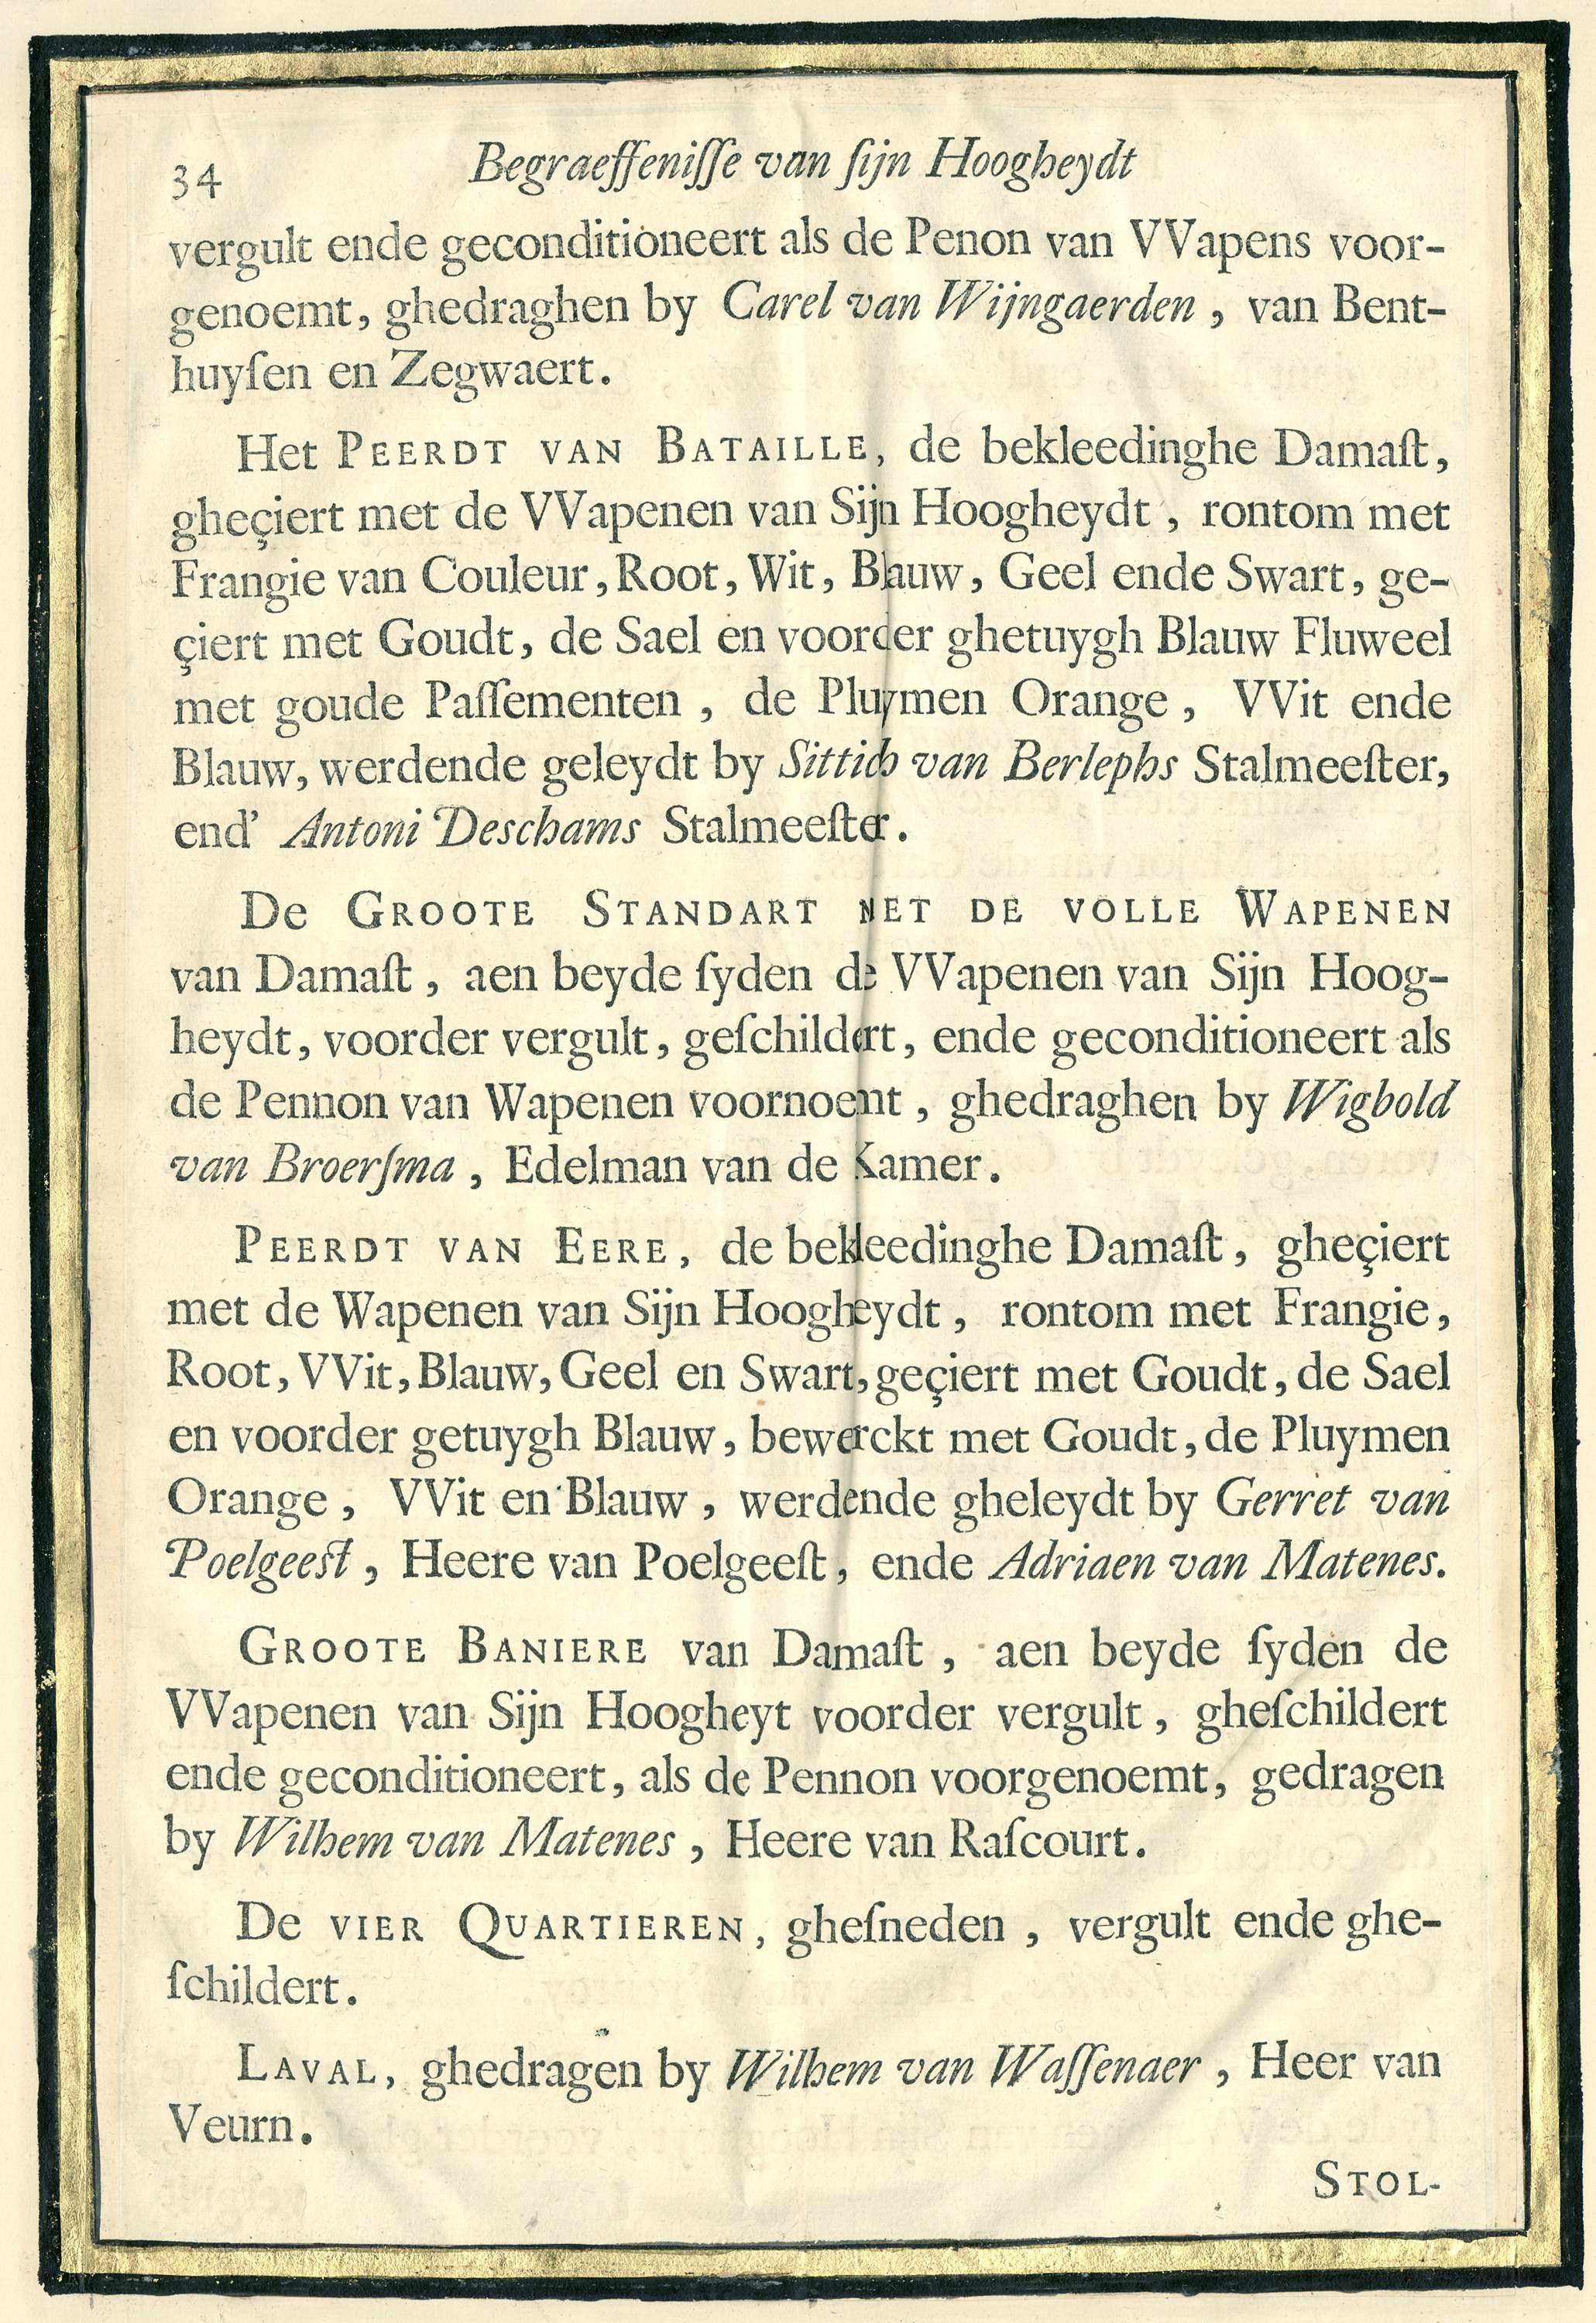 34 Begraeffeniſſe van ſijn Hoogheydt
vergult ende geconditioneert als de Penon van VVapens voor-
genoemt, ghedraghen by Carel van Wijngaerden, van Bent-
huyſen en Zegwaert.
Het PEERDT VAN BATAILLE, de bekleedinghe Damaſt,
gheçiert met de VVapenen van Sijn Hoogheydt, rontom met
Frangie van Couleur, Root, Wit, Blauw, Geel ende Swart, ge-
çiert met Goudt, de Sael en voorder ghetuygh Blauw Fluweel
met goude Paſſementen, de Pluymen Orange, VVit ende
Blauw, werdende geleydt by Sittich van Berlephs Stalmeeſter,
end' Antoni Deschams Stalmeeſter.
De GROOTE STANDART MET DE VOLLE WAPENEN
van Damaſt, aen beyde ſyden de VVapenen van Sijn Hoog-
heydt, voorder vergult, geſchildert, ende geconditioneert als
de Pennon van Wapenen voornoemt, ghedraghen by Wigbold
van Broerſma, Edelman van de Kamer.
PEERDT VAN EERE, de bekleedinghe Damaſt, gheçiert
met de Wapenen van Sijn Hoogheydt, rontom met Frangie,
Root, VVit, Blauw, Geel en Swart, geçiert met Goudt, de Sael
en voorder getuygh Blauw, bewerckt met Goudt, de Pluymen
Orange, VVit en Blauw, werdende gheleydt by Gerret van
Poelgeeſt, Heere van Poelgeeſt, ende Adriaen van Matenes.
GROOTE BANIERE van Damaſt, aen beyde ſyden de
VVapenen van Sijn Hoogheyt voorder vergult, gheſchildert
ende geconditioneert, als de Pennon voorgenoemt, gedragen
by Wilhem van Matenes, Heere van Raſcourt.
De VIER QUARTIEREN, gheſneden, vergult ende ghe-
ſchildert.
LAVAL, ghedragen by Wilhem van Waſſenaer, Heer van
Veurn.
STOL-